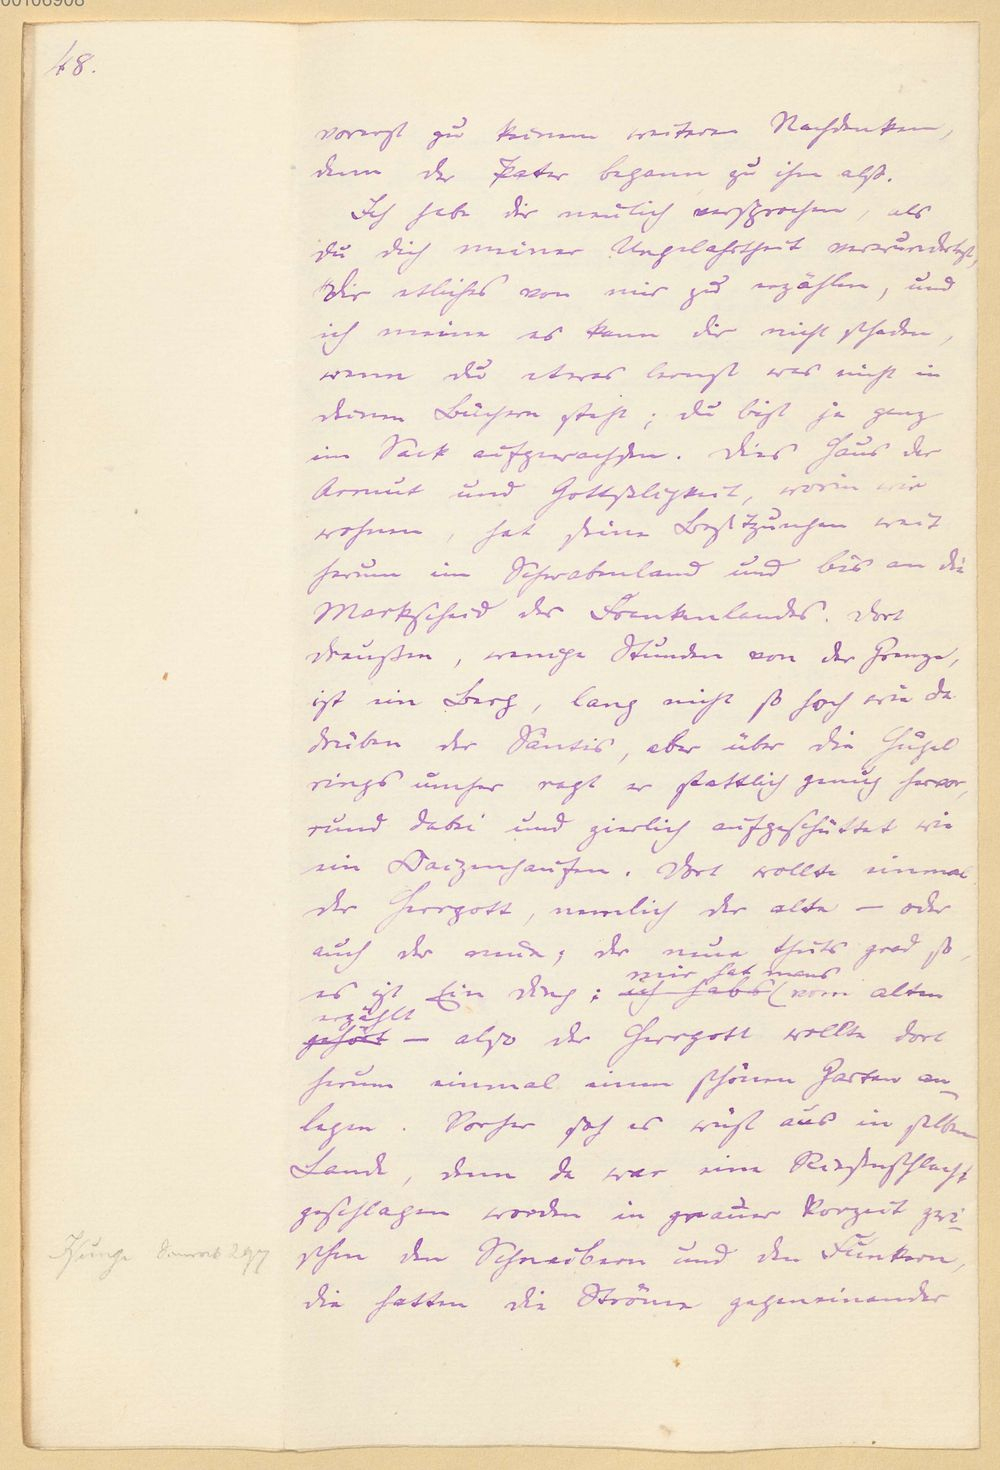 48.
vorerst zu keinem weiteren Nachdenken,
denn der Pater begann zu ihm also.
Ich habe dir neulich versprochen, als
du dich meiner Ungelahrtheit verwundertest,
dir etliches von mir zu erzählen, und
ich meine es kann dir nicht schaden,
wenn du etwas lernst was nicht in
deinen Büchern steht; du bist ja ganz
im Sack aufgewachsen. Dies Haus der
Armut und Gottseligkeit, worin wir
wohnen, hat seine Besitzungen weit
herum im Schwabenland und bis an die
Markscheid des Frankenlandes. Dort
draußen, wenige Stunden von der Grenze,
ist ein Berg, lang nicht so hoch wie da
drüben der Säntis, aber über die Hügel
rings umher ragt er stattlich genug hervor,
rund dabei und zierlich aufgeschüttet wie
ein Waizenhaufen. Dort wollte einmal
der Herrgott, nemlich der alte — oder
auch der neue; der neue thuts grad so,
es ist Ein Ding; ich habs mir hat mans vom alten
gehört erzählt — also der Herrgott wollte dort
herum einmal einen schönen Garten an-
legen. Vorher sah es wüst aus in selbem
Lande, denn da war eine Riesenschlacht
geschlagen worden in grauer Vorzeit zwi-
schen den Schneibern und den Funkern,
die hatten die Ströme gegeneinander